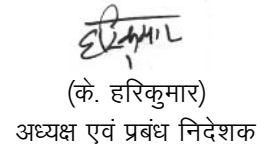 हरिकुमार
(के. हरिकुमार)
अध्यक्ष एवं प्रबंध निदेशक